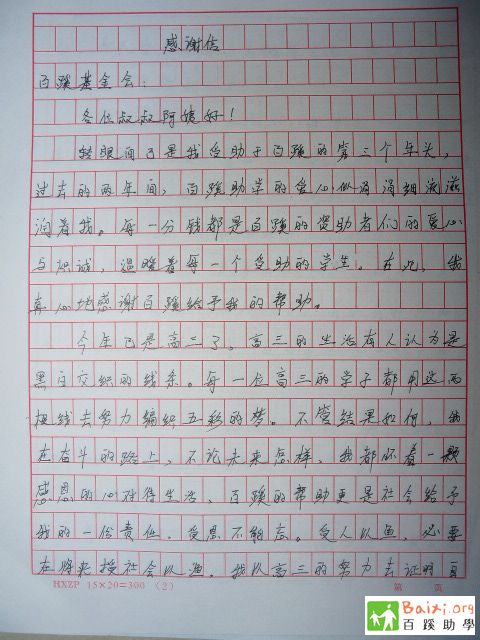 感谢信
百蹊基金会：
各位叔叔阿姨好！
转眼间已是我受助于百蹊的第三个年头，
过去的两年间，百蹊助学的爱心似涓涓细流滋
润着我。每一分钱都是百蹊的资助者们的爱心
与积诚，温暖着每一个受助的学生。在此，我
真心地感谢百蹊给予我的帮助。
今年已是高三了。高三的生活有人认为是
黑白交织的线条。每一位高三的学子都用这两
根线去努力编织五彩的梦。不管结果如何，我
在奋斗的路上，不论未来怎样，我都怀着一颗
感恩的心对待生活，百蹊的帮助更是社会给予
我的一份责任。受恩不能忘。受人以渔，必要
在将来授社会以渔。我以高三的努力去证明自
HXZP 15×20=300 (2) 第 页
Baixi.org
百蹊助學